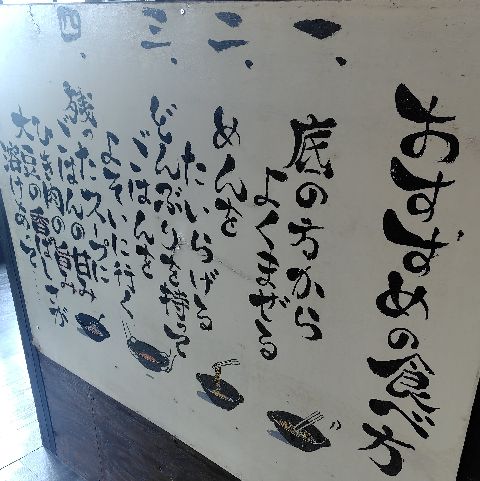 おすすめの食べ方
一、
底の方から
よくまぜる
二、
めんを
たいらげる
三、
どんぶりを持って
ごはんを
よそいに行く
四、
残ったスープに
ごはんの甘み
ひき肉の旨み
大豆の香ばしさが
溶けあって